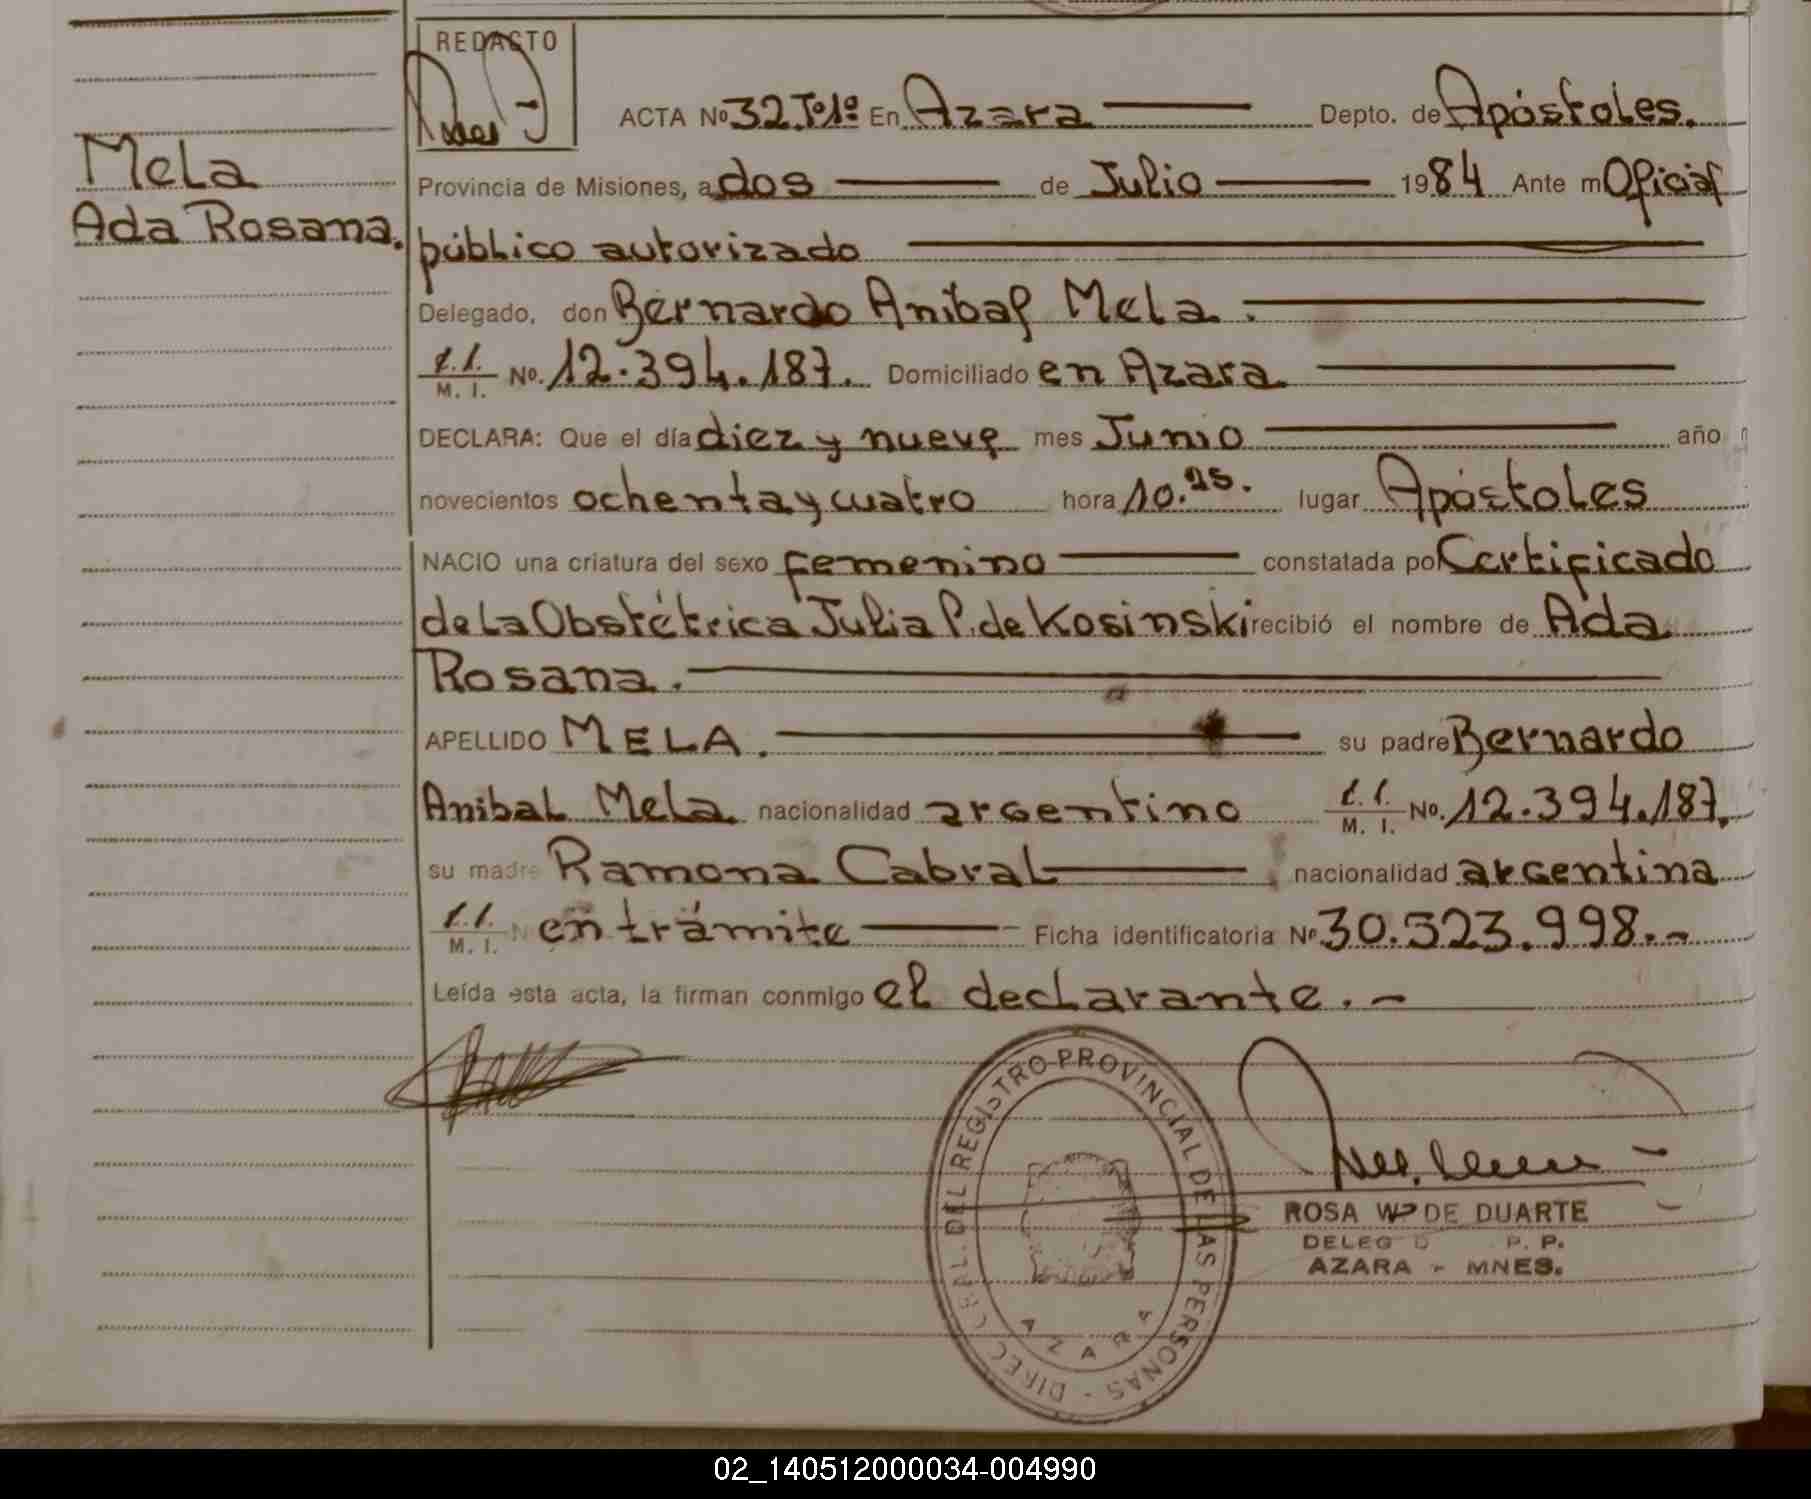 REDACTO
ACTA Nº 32 Tº1º En Azara Depto. de Apóstoles.
Mela
Provincia de Misiones, a dos de Julio 1984 Ante m Oficial
Ada Rosana.
público autorizado
Delegado, don Bernardo Anibal Mela.
M. I. Nº. 12.394.187. Domiciliado en Azara
DECLARA: Que el día diez y nueve mes Junio año
novecientos ochenta y cuatro hora 10.25. lugar Apóstoles
NACIO una criatura del sexo femenino constatada por Certificado
de la Obstétrica Julia P. de Kosinski recibió el nombre de Ada
Rosana.
APELLIDO MELA. su padre Bernardo
Anibal Mela nacionalidad argentino M. I. Nº. 12.394.187.
su madre Ramona Cabral nacionalidad argentina
M. I. N en trámite Ficha identificatoria Nº 30.523.998.-
Leída esta acta, la firman conmigo el declarante.-
DIREC GRAL. DEL REGISTRO PROVINCIAL DE LAS PERSONAS -
AZARA
ROSA Wº DE DUARTE
DELEG D P. P.
AZARA - MNES.
02_140512000034-004990